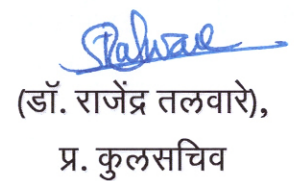 (डॉ. राजेंद्र तलवारे),
प्र. कुलसचिव